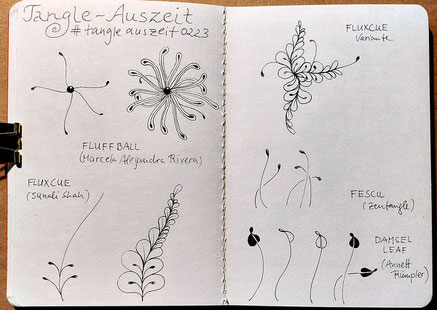 Tangle-Auszeit
# tangle auszeit 0223
FLUFFBALL
(Marcela Alejandra Rivera)
FLUXCUE
(Sunali Shah)
FLUXCUE
Variante
FESCU
(Zentangle)
DAMSEL
LEAF
(Annett
Rümpler)